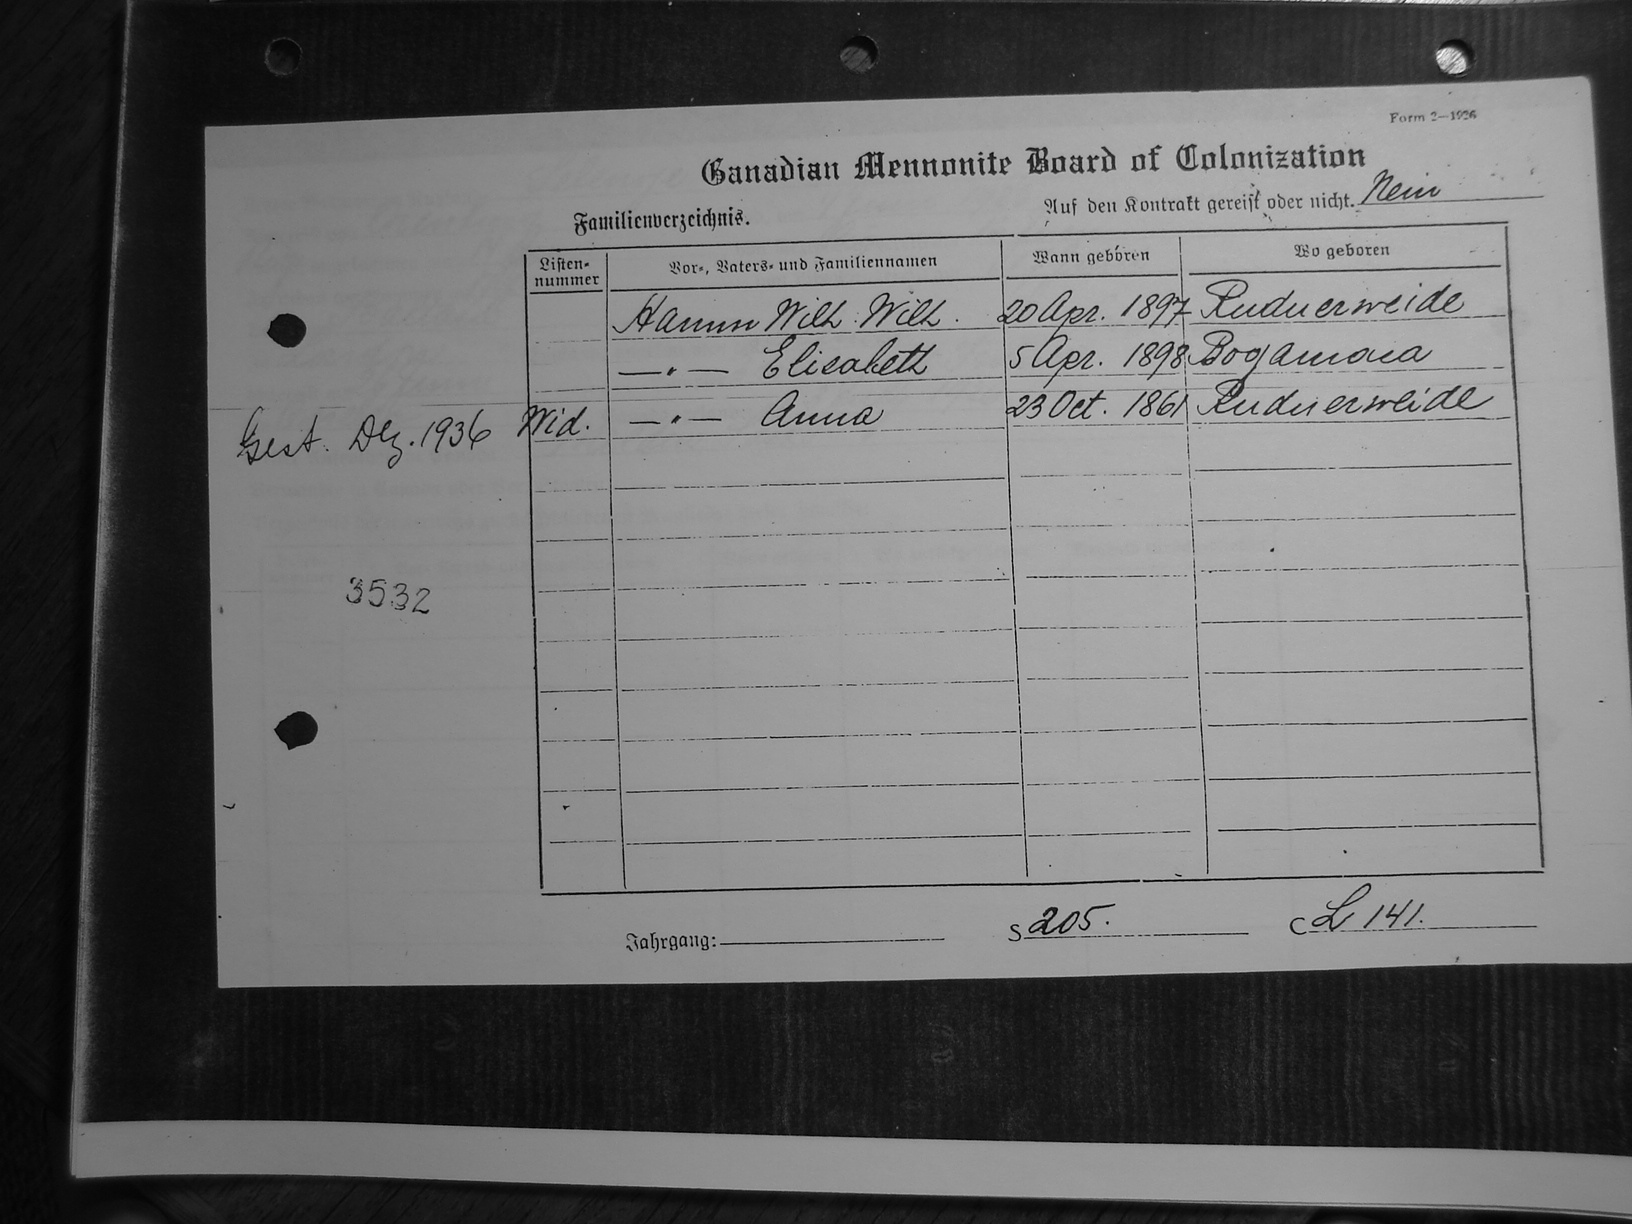 Form 2—1926
Canadian Mennonite Board of Colonization
Familienverzeichnis.
Auf den Kontrakt gereist oder nicht. Nein
Listen-nummer Vor-, Vaters- und Familiennamen Wann geboren Wo geboren
Hamm Wilh. Wilh. 20 Apr. 1897 Rudnerweide
—"— Elisabeth 5 Apr. 1898
Gest. Dez. 1936 Wid. —"— Anna 23 Oct. 1861 Rudnerweide
3532
Jahrgang: S 205. C L 141.